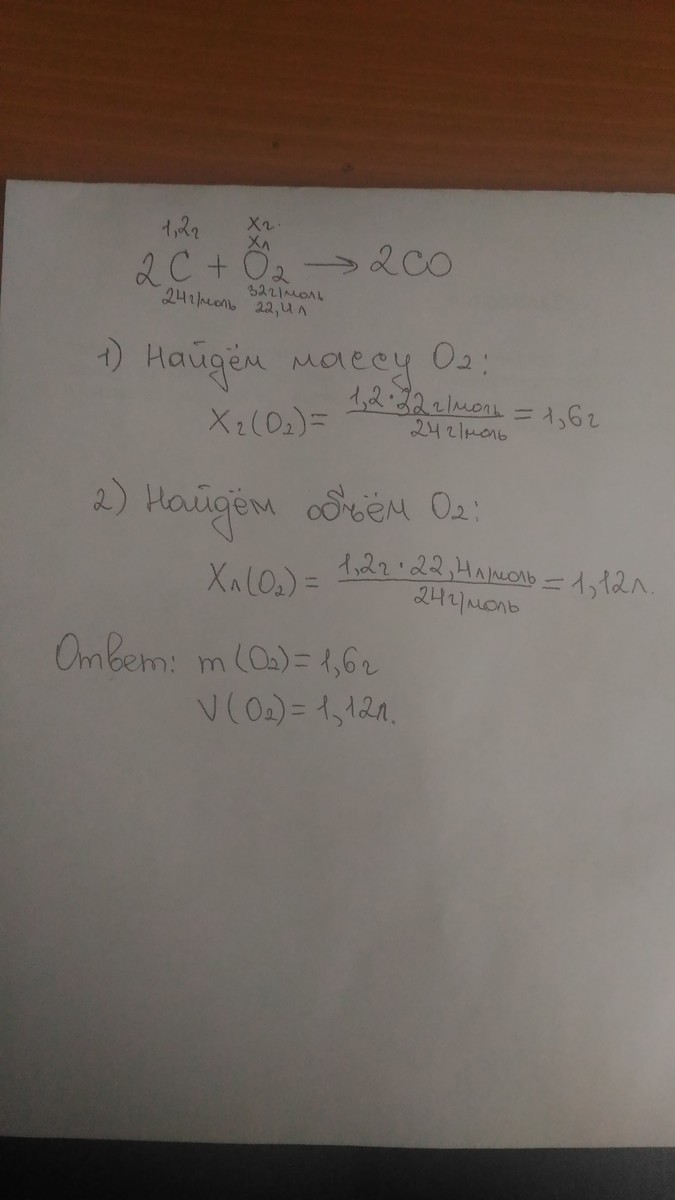 1,2г Xг.
Xл
2C + O₂ → 2CO
24г/моль 32г/моль
22,4л
1) Найдём массу O₂:
Xг(O₂) = 1,2 · 32г/моль / 24г/моль = 1,6г
2) Найдём объём O₂:
Xл(O₂) = 1,2г · 22,4л/моль / 24г/моль = 1,12л.
Ответ: m(O₂) = 1,6г
V(O₂) = 1,12л.